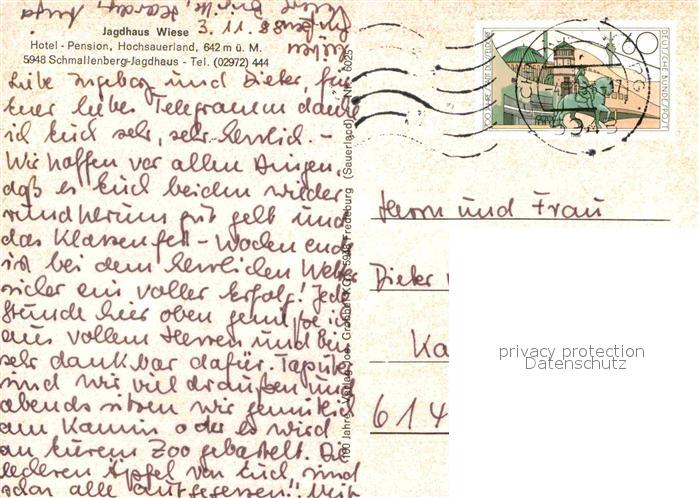 Jagdhaus Wiese 3.11.88
Hotel - Pension, Hochsauerland, 642 m ü. M.
5948 Schmallenberg-Jagdhaus - Tel. (02972) 444
Liebe Ingeborg und Dieter, für
Euer liebes Telegramm danke
ich Euch sehr, sehr herzlich. -
Wir hoffen vor allen Dingen,
daß es Euch beiden wieder
rundherum gut geht und
das Klassenfest-Wochenende
ist bei dem herrlichen Wetter
sicher ein voller Erfolg! Jede
Stunde hier oben genieße ich
aus vollem Herzen und bin
sehr dankbar dafür. Tagsüber
sind wir viel draußen und
abends sitzen wir gemütlich
am Kamin oder es wird
an Eurem Zoo gebastelt. Die
leckeren Äpfel von Euch sind
schon alle aufgegessen! Mit
100 Jahre Verlag Jos. Grobbel KG, 5948 Fredeburg (Sauerland)
60
DEUTSCHE BUNDESPOST
5948
Herrn und Frau
Dieter
Ka
614
privacy protection
Datenschutz